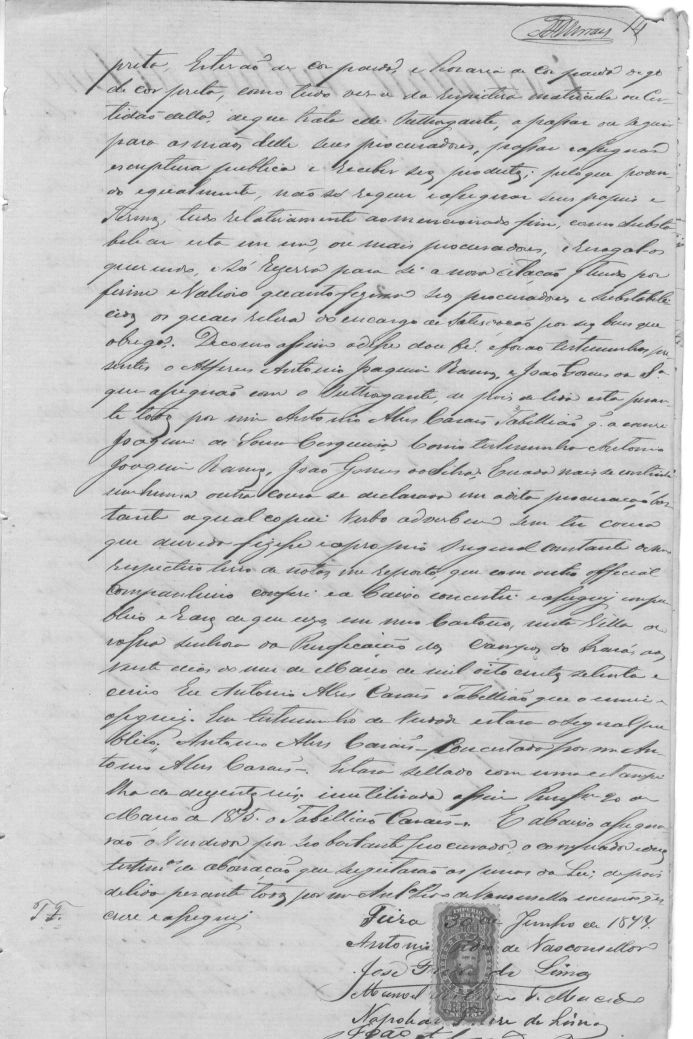 14
preta, Estevão de cor parda, e Honoria de cor parda digo
de cor preta, como tudo ver se da respectiva matricula ou Cer
tidão della, de que trata elle Outhorgante, a passar ou seguir
para as mãos delle seus procuradores, passar e assignar
escriptura publica e receber seu producto; pelo que poden
do igualmente, não só requerer e assignar seus papeis e
Termos, tudo relativamente ao mencionado fim, como substa
belecer esta em um, ou mais procuradores, e revogal os
querendo, e só reserva para si a nova citação tendo por
firme e Valioso quanto fizerem seus procuradores e substabele
cidos os quaes releva do encargo de satisdação por seus bens que
obrigou. De como assim o disse dou fé. e forão testemunhas pre
sentes o Alferes Antonio Joaquim Ramos, e João Gomes da Sª
que assignão com o Outhorgante, depois de lida esta peran
te todos por mim Antonio Alves Carais Tabellião q. a escrevi
Joaquim de Souza Cerqueira. Como testemunha Antonio
Joaquim Ramos, João Gomes da Silva. E nada mais se continha
nenhuma outra cousa se declarava em a dita procuração bas
tante a qual copiei verbo adverbum sem ter cousa
que duvida fizesse e a proprio original constante do meo
respectivo livro de notas me reporto, que com outro official
companheiro conferi e a Carão concertei e assignei em pu
blico e raso de que uso, em meo Cartorio, nesta Villa de
nossa senhora da Purificação dos Campos do Irará aos
vinte dias do mez de Março de mil oito centos setenta e
cinco Eu Antonio Alves Carais Tabellião que o escrevi e
assignei. Em testemunho de Verdade estava o Signal pu
blico, Antonio Alves Carais. Concertado por mim An
tonio Alves Carais. Estava sellado com uma estampi
lha de duzentos reis inutilizada assim Purifm 20 de
Março de 1875. o Tabellião Carais. E abaixo assigna
rão o vendedor por seo bastante procurador, o comprador e as
testemas de abonação que sugeitarão as penas da Lei: depois
de lida perante todos por mim
escrevi e assignei
Feira 30 de Junho de 1877.
Antonio de Vasconsellos
José Freire de Lima
Manoel de Macedo
Napoleão Freire de Lima
João
IMPERIO DO BRAZIL